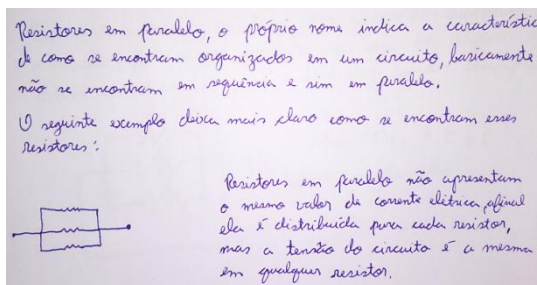 Resistores em paralelo, o próprio nome indica a característic
de como se encontram organizados em um circuito, basicamente
não se encontram em sequência e sim em paralelo.
O seguinte exemplo deixa mais claro como se encontram esses
resistores:
Resistores em paralelo não apresentam
o mesmo valor de corrente elétrica, afinal
ela é distribuída para cada resistor,
mas a tensão do circuito é a mesma
em qualquer resistor.